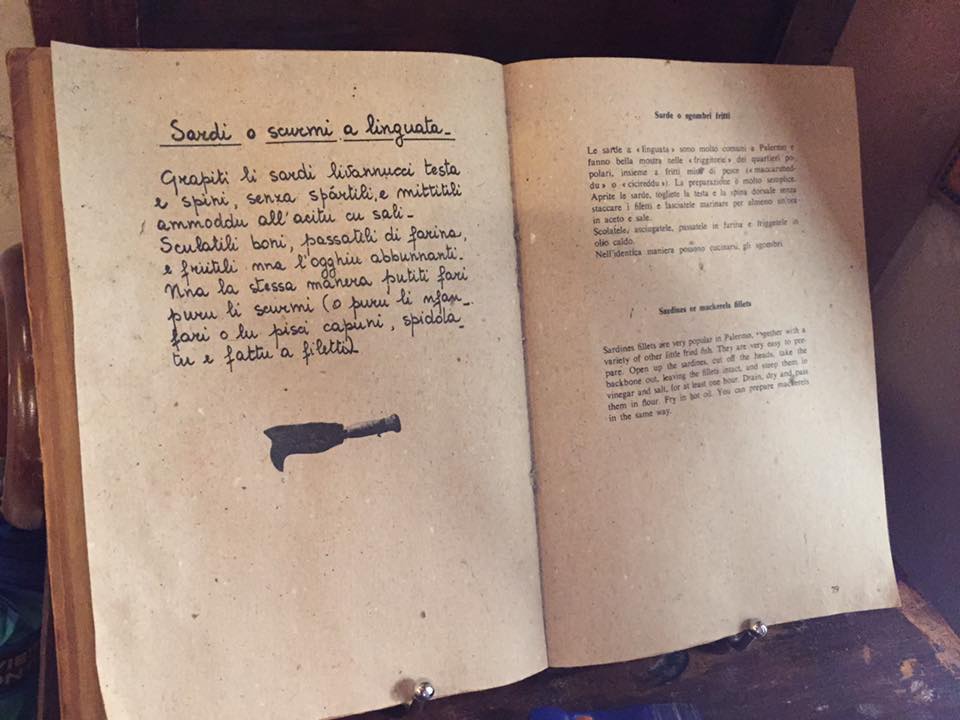 Sardi o scurmi a linguata_
Grapiti li sardi livannucci testa
e spini, senza spártili, e mittitili
ammoddu all'acitu cu sali_
Sculatili boni, passatili di farina,
e friitili nna l'ogghiu abbunnanti_
Nna la stessa manera putiti fari
puru li scurmi (o puru li nfan_
fari o lu pisci capuni, spidda_
tu e fattu a filetti)
Sarde o sgombri fritti
Le sarde a «linguata» sono molto comuni a Palermo e
fanno bella mostra nelle «friggitorie» dei quartieri po-
polari, insieme a fritti misti di pesce («maccarruned-
du» o «cicireddu»). La preparazione è molto semplice.
Aprite le sarde, togliete la testa e la spina dorsale senza
staccare i filetti e lasciatele marinare per almeno un'ora
in aceto e sale.
Scolatele, asciugatele, passatele in farina e friggetele in
olio caldo.
Nell'identica maniera possono cucinarsi gli sgombri
Sardines or mackerels fillets
Sardines fillets are very popular in Palermo, together with a
variety of other little fried fish. They are very easy to pre-
pare. Open up the sardines, cut off the heads, take the
backbone out, leaving the fillets intact, and steep them in
vinegar and salt, for at least one hour. Drain, dry and pass
them in flour. Fry in hot oil. You can prepare mackerels
in the same way.
79